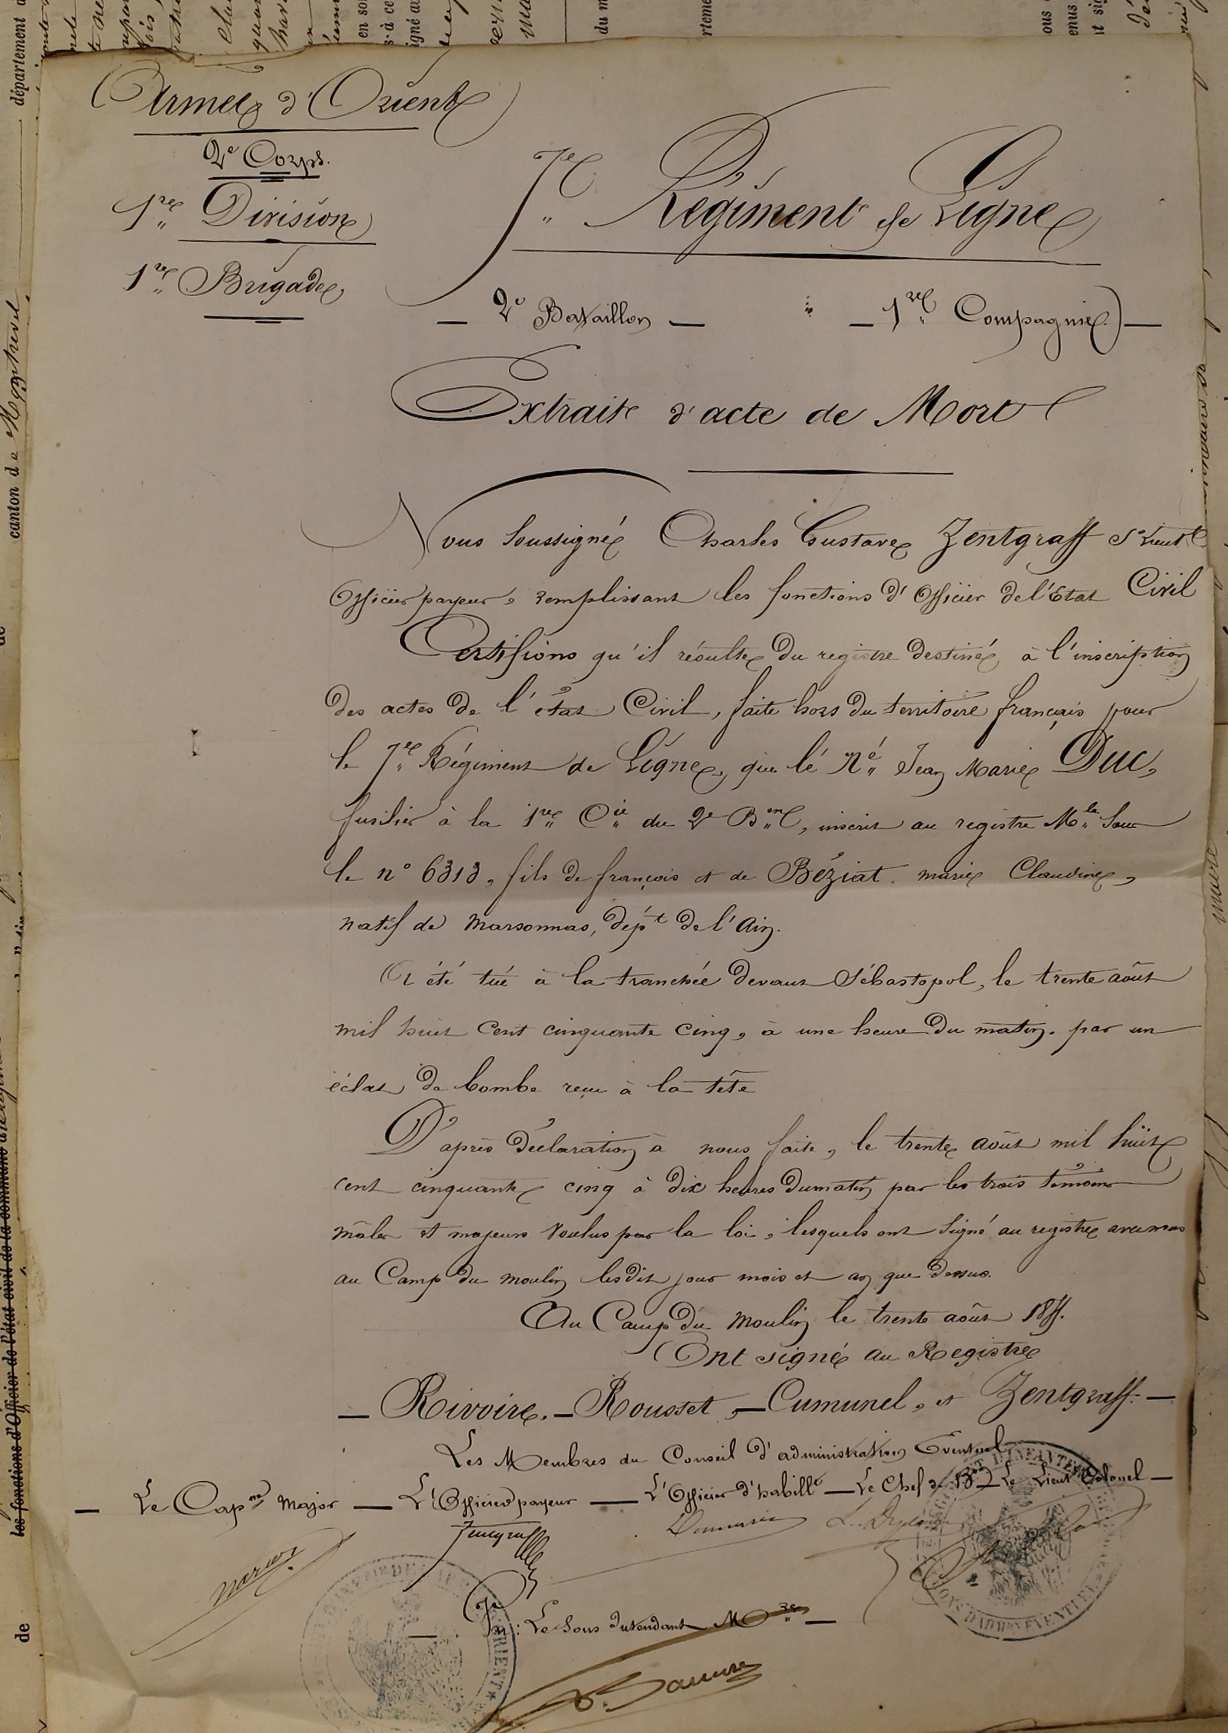 Armée d'Orient
2e Corps.
1re Division
1re Brigade
7e Régiment de Ligne
2e Bataillon — 1re Compagnie
Extrait d'acte de Mort
Nous Soussigné Charles Gustave Zentgraff Ss Lieut
Officier payeur, remplissant les fonctions d'Officier de l'État Civil
Certifions qu'il résulte du registre destiné à l'inscription
des actes de l'état Civil, faite hors du territoire français pour
le 7e Régiment de Ligne, que le Né Jean Marie Duc,
fusilier à la 1re Cie du 2e Bon, inscrit au registre Mle Sous
le n° 6313, fils de françois et de Béziat marie Claudine,
natif de Marsonnas, dépt de l'Ain.
A été tué à la tranchée devant Sébastopol, le trente août
mil huit cent cinquante cinq, à une heure du matin. par un
éclat de bombe reçu à la tête
D'après déclaration à nous faite, le trente août mil huit
cent cinquante cinq à dix heures du matin par les trois témoins
mâles et majeurs voulus par la loi, lesquels ont signé au registre avec nous
au Camp du moulin lesdit jour mois et an que dessus.
Au Camp du Moulin le trente août 1855.
Ont signé au Registre
— Rivoire. — Rousset, — Cumunel, et Zentgraff. —
Les Membres du Conseil d'administration Eventuel
— Le Capne Major — L'Officier payeur — L'Officier d'habillt — Le Chef de Bon Le Lieut Colonel —
Zentgraff
— Vu : Le Sous Intendant Mre —
département
canton de Montrevel
les fonctions d'Officier de l'état civil de la commune
de